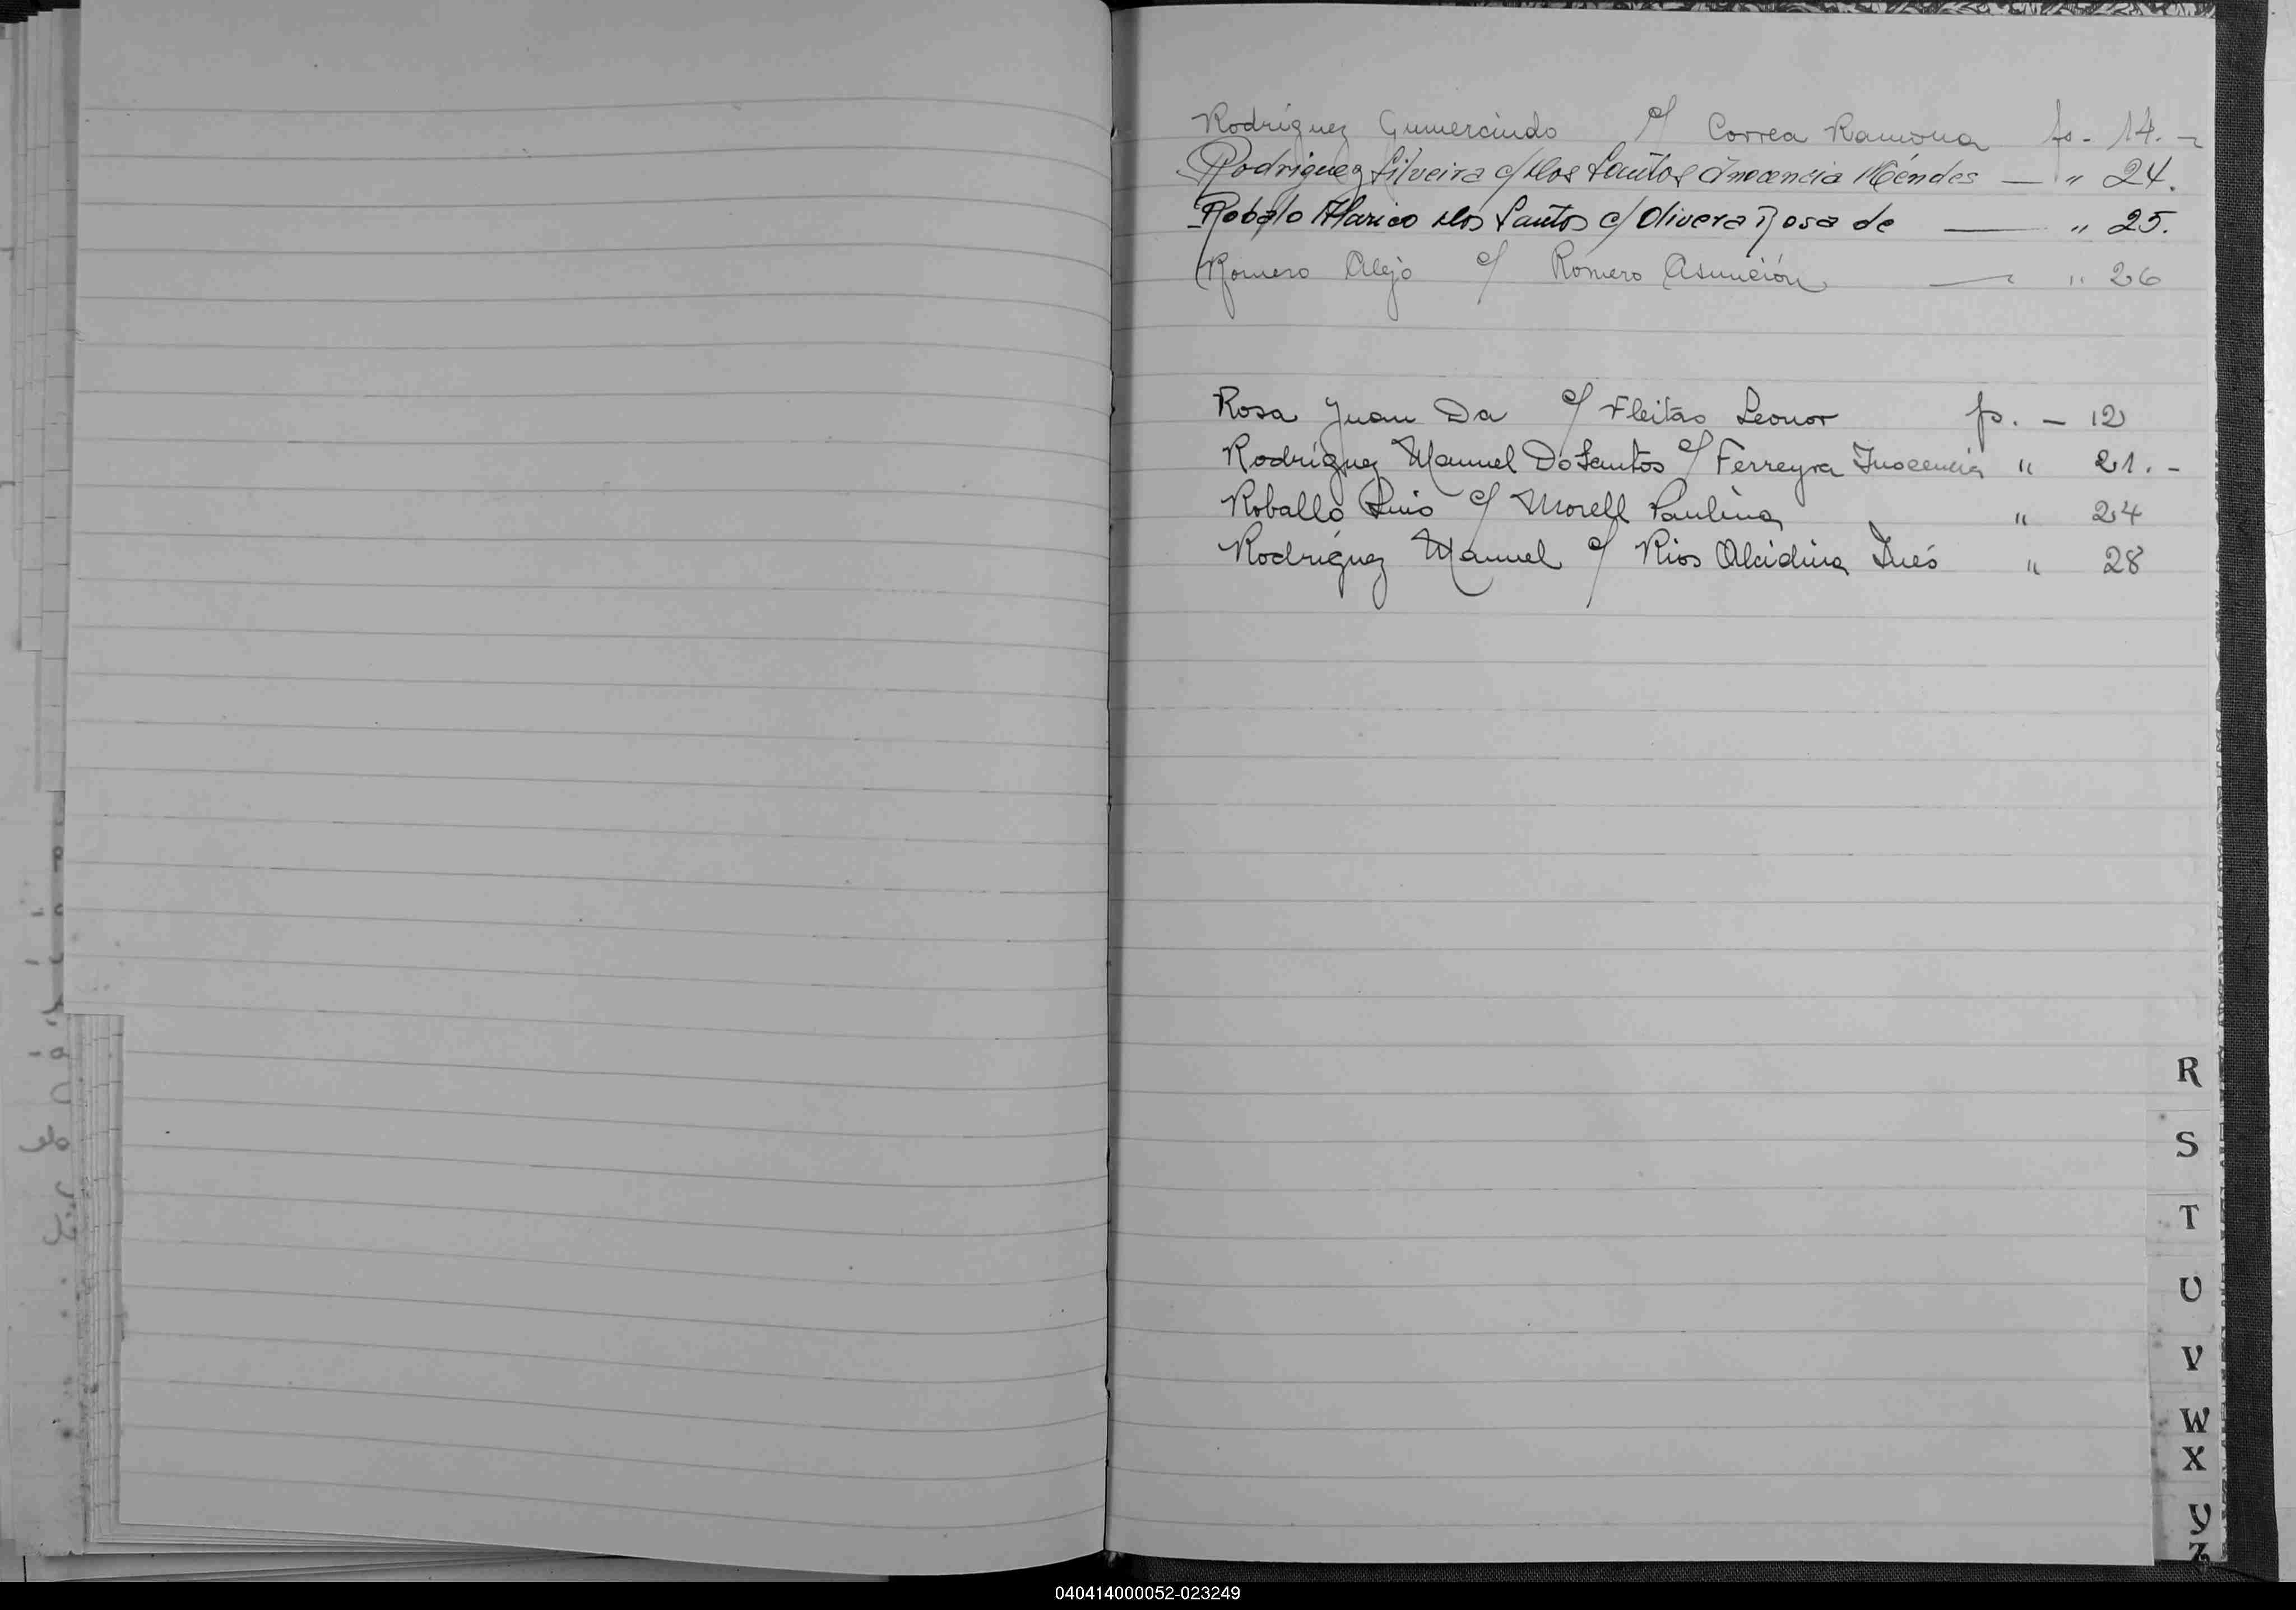 Rodríguez Gumercindo c/ Correa Ramona fs - 14. -
Rodriguez Silveira c/ Dos Santos Inocencia Méndes — " 24.
Robalo Marico Dos Santos c/ Olivera Rosa de — " 25.
Romero Alejo c/ Romero Asunción — " 26
Rosa Juan Da c/ Fleitas Leonor fs. - 12
Rodríguez Manuel Do Santos c/ Ferreyra Inocencia " 21. -
Roballo Luis c/ Morell Paulina " 24
Rodríguez Manuel c/ Rios Alcidina Inés " 28
R
S
T
U
V
W
X
Y
Z
040414000052-023249